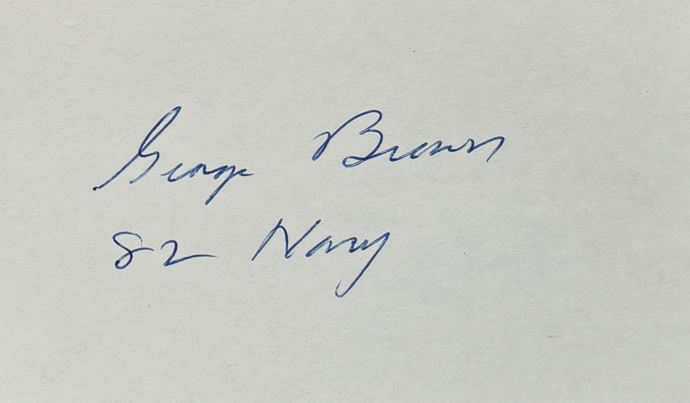 George Brown
82 Navy